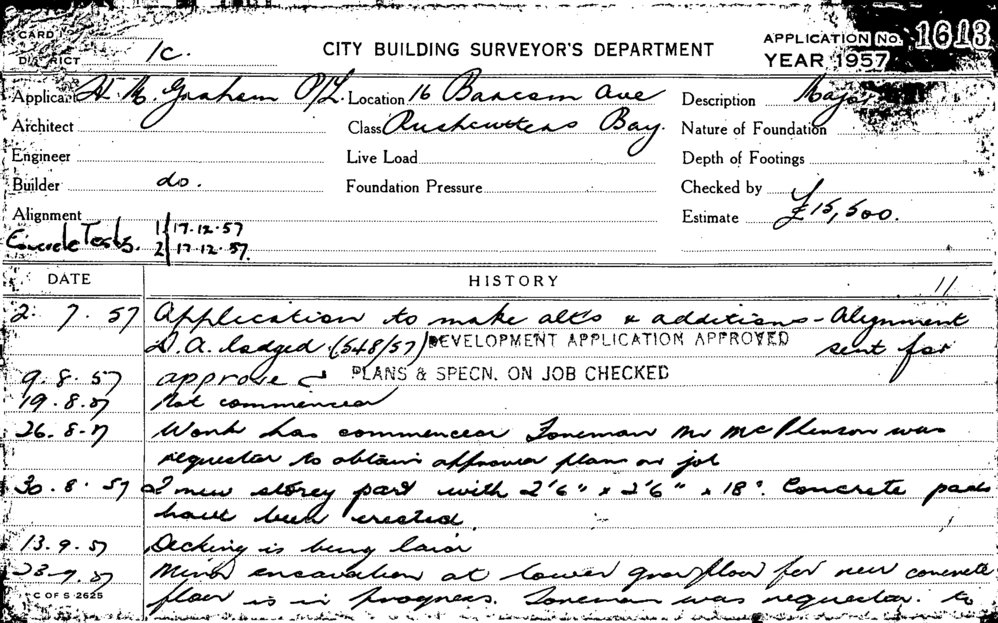 CARD
DISTRICT 1C. CITY BUILDING SURVEYOR'S DEPARTMENT APPLICATION No. 1613
YEAR 1957
Applicant H. M. Graham P/L. Location 16 Barcom Ave Description Major
Architect Class Rushcutters Bay. Nature of Foundation
Engineer Live Load Depth of Footings
Builder do. Foundation Pressure Checked by
Alignment Estimate £15,500.
Concrete Tests. 1 17.12.57
2 17.12.57.
DATE HISTORY
2. 7. 57 Application to make alts & additions - Alignment
D.A. lodged. (548/57) DEVELOPMENT APPLICATION APPROVED sent for
9. 8. 57 approved PLANS & SPECN. ON JOB CHECKED
19. 8. 57 Not commenced
26. 8. 57 Work has commenced Foreman Mr McPherson was
requested to obtain approved plan on job
30. 8. 57 2 new storey part with 2'6" x 2'6" x 18". Concrete pads
have been erected.
13. 9. 57 Decking is being laid
23. 9. 57 Minor excavation at lower floor for new concrete
floor is in progress. Foreman was requested. to
C OF S 2625